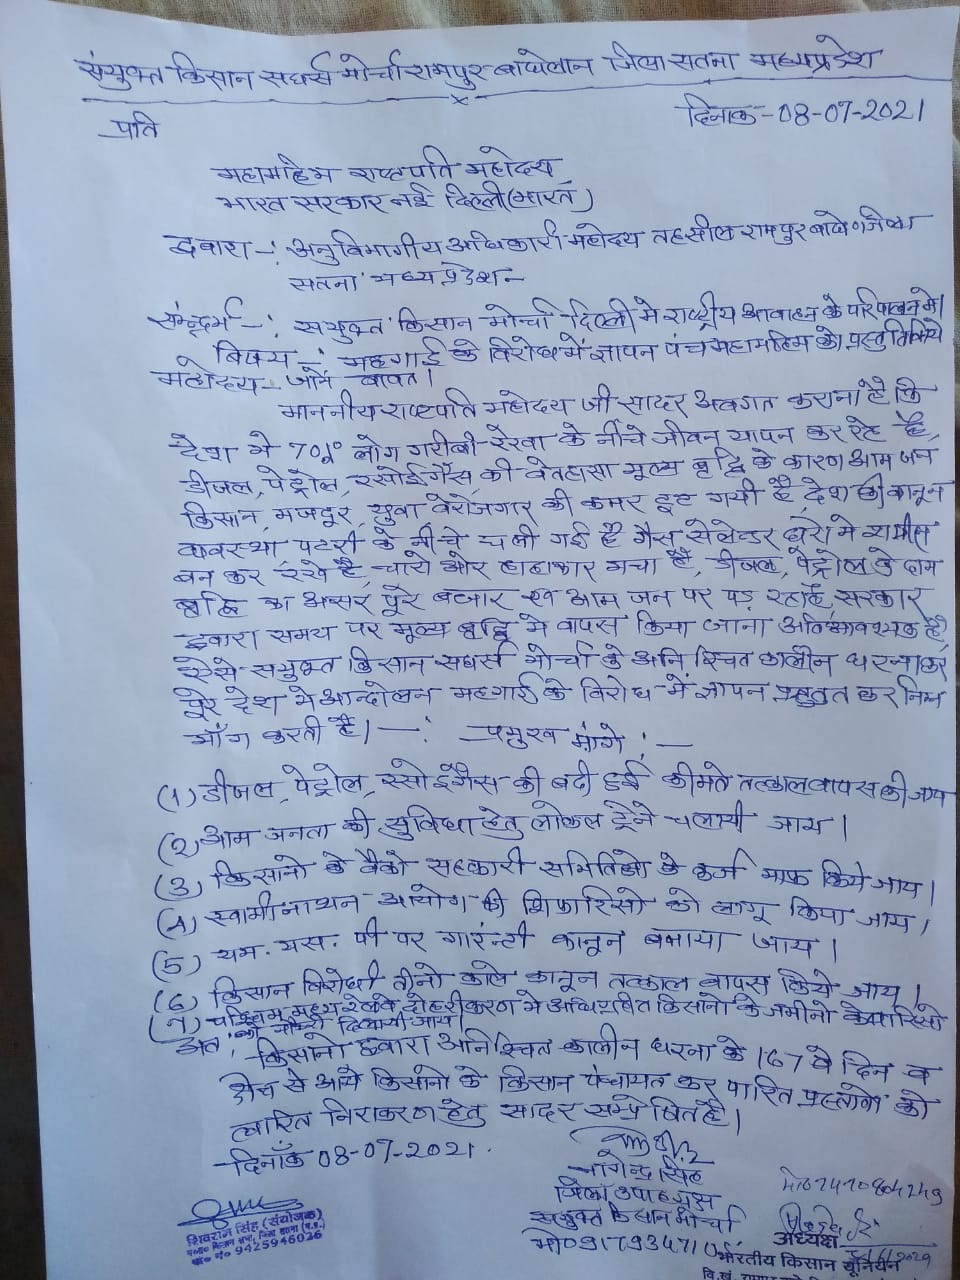 संयुक्त किसान सघर्स मोर्चा रामपुर बाघेलान जिला सतना मध्यप्रदेश
दिनाक - 08-07-2021
प्रति
महामहिम राष्टपति महोदय
भारत सरकार नई दिल्ली (भारत)
द्वारा -: अनुविभागीय अधिकारी महोदय तहसील रामपुर बाघे० जिला
सतना मध्य प्रदेश -
सन्दर्भ -: सयुक्त किसान मोर्चा दिल्ली मे राष्ट्रीय आवाहन के परिपालन मे।
विषय -: महगाई के विरोध में ज्ञापन पंच महामहिम को प्रस्तुत किये
महोदय - जाने बावत।
माननीय राष्टपति महोदय जी सादर अवगत कराना है कि
देश मे 70% लोग गरीबी रेखा के नीचे जीवन यापन कर रहे है,
डीजल, पेट्रोल, रसोई गैस की बेतहासा मूल्य बृद्धि के कारण आम जन
किसान, मजदूर, युवा बेरोजगार की कमर टूट गयी है, देश की कानून
व्यवस्था पटरी के नीचे चली गई है गैस सेलेन्डर घरो मे
बन कर रखे है, चारो ओर हाहाकार मचा है, डीजल, पेट्रोल के दाम
बृद्धि का असर पूरे बजार एव आम जन पर पड़ रहा है, सरकार
द्वारा समय पर मूल्य बृद्धि मे वापस किया जाना अतिआवश्यक है,
ऐसे सयुक्त किसान सघर्स मोर्चा के अनिश्चित कालीन धरना कर,
पूरे देश मे आन्दोलन महगाई के विरोध में ज्ञापन प्रस्तुत कर निम्न
माँग करती है। -: प्रमुख मांगे :-
(1) डीजल, पेट्रोल, रसोई गैस की बढी हुई कीमते तत्काल वापस की जाय
(2) आम जनता की सुविधा हेतु लोकल ट्रेने चलायी जाय।
(3) किसानो के बैंको सहकारी समितिओ के कर्ज माफ किये जाय।
(4) स्वामीनाथन आयोग की शिफारिसो को लागू किया जाय,
(5) यम. यस. पी पर गारंन्टी कानून बनाया जाय।
(6) किसान विरोधी तीनो काले कानून तत्काल वापस किये जाय।
(7) पश्चिम मध्य रेलवे दोहरीकरण मे अधिग्रहित किसानो के जमीनो के वारिसो
को नौकरी दिलायी जाय।
अतः किसानो द्वारा अनिश्चित कालीन धरना के 167 वे दिन व
क्षेत्र से आये किसानो के किसान पंचायत कर पारित प्रस्तावो को
त्वरित निराकरण हेतु सादर सम्प्रेषित है।
दिनाँक 08-07-2021.
नागेन्द्र सिंह
जिला उपाध्यक्ष
सयुक्त किसान मोर्चा
शिवराज सिंह (संयोजक)
मो० नं० 9425946026
अध्यक्ष
भारतीय किसान यूनियन